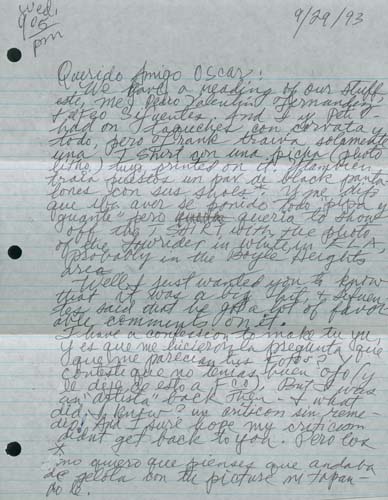 Wed.
9:05
pm
9/29/93
Querido Amigo Oscar:
We have a reading of our stuff
este, me, Pedro Valentin Fernandez,
Fatgo Sifuentes. And I y Pete
had on taquches con corvata y
todo, pero Frank traiva solamente
una T Shirt con una picha (photo
litho) tuyo printed on it. También
traia puesto un par de black panta
lones con sus shoes. Y me dijo
que iba aver se ponido todo pipa y
guante" pero queria to show
off the T-SHIRT with the photo
of the lowrider in white in E.L.A,
probably in the Boyle Heights
area.
Well I just wanted you to know
that it was a big hit & Sifuen
tes said that he got a lot of favor
able comments on it.
I have a confession to make tu yu,
y es que me hicieron la pregunta que
¿que me parecian tus fotos? y
contesté que no tenias buen ojo (y
le dije de esto a F.C.C). But I was
an "artista" back then - & what
did I know? un criticon sin reme-
dio! And I sure hope my criticism
didn't get back to you. Pero los
no quiero que pienses que andaba
de gelota con tu picture mi tapan-